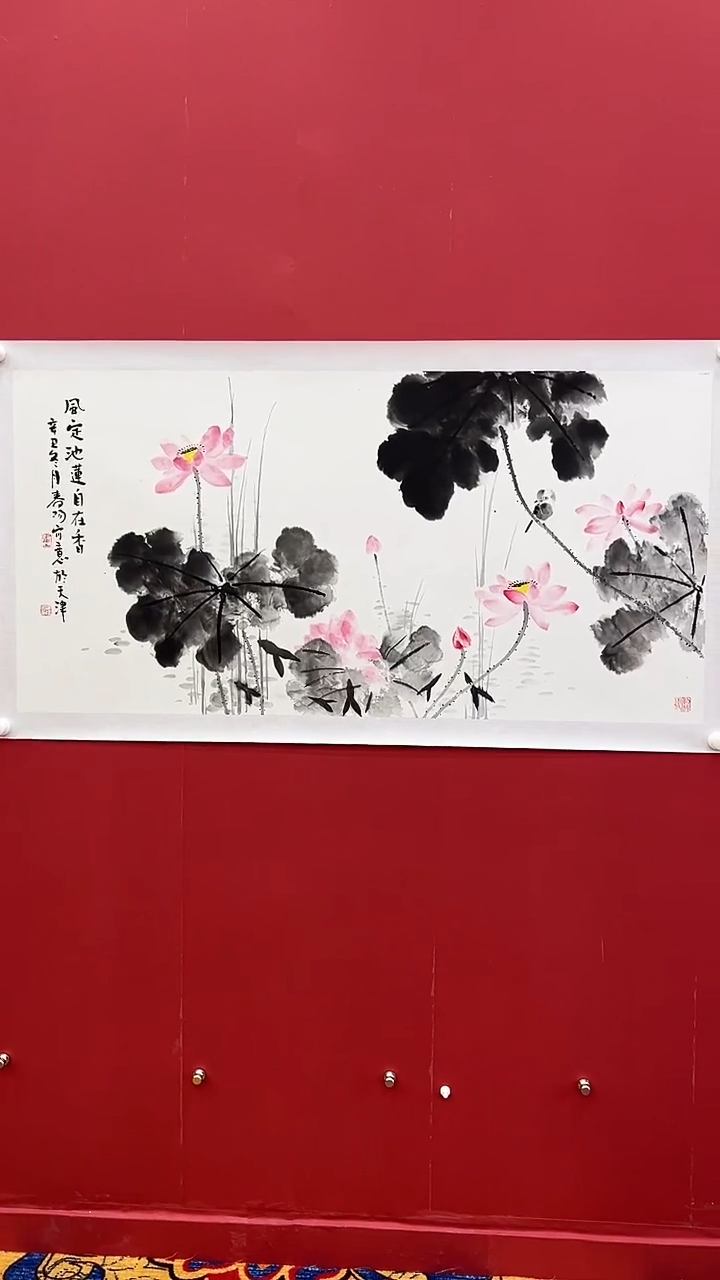 風定池蓮自在香
辛丑冬月春陽寫意於天津